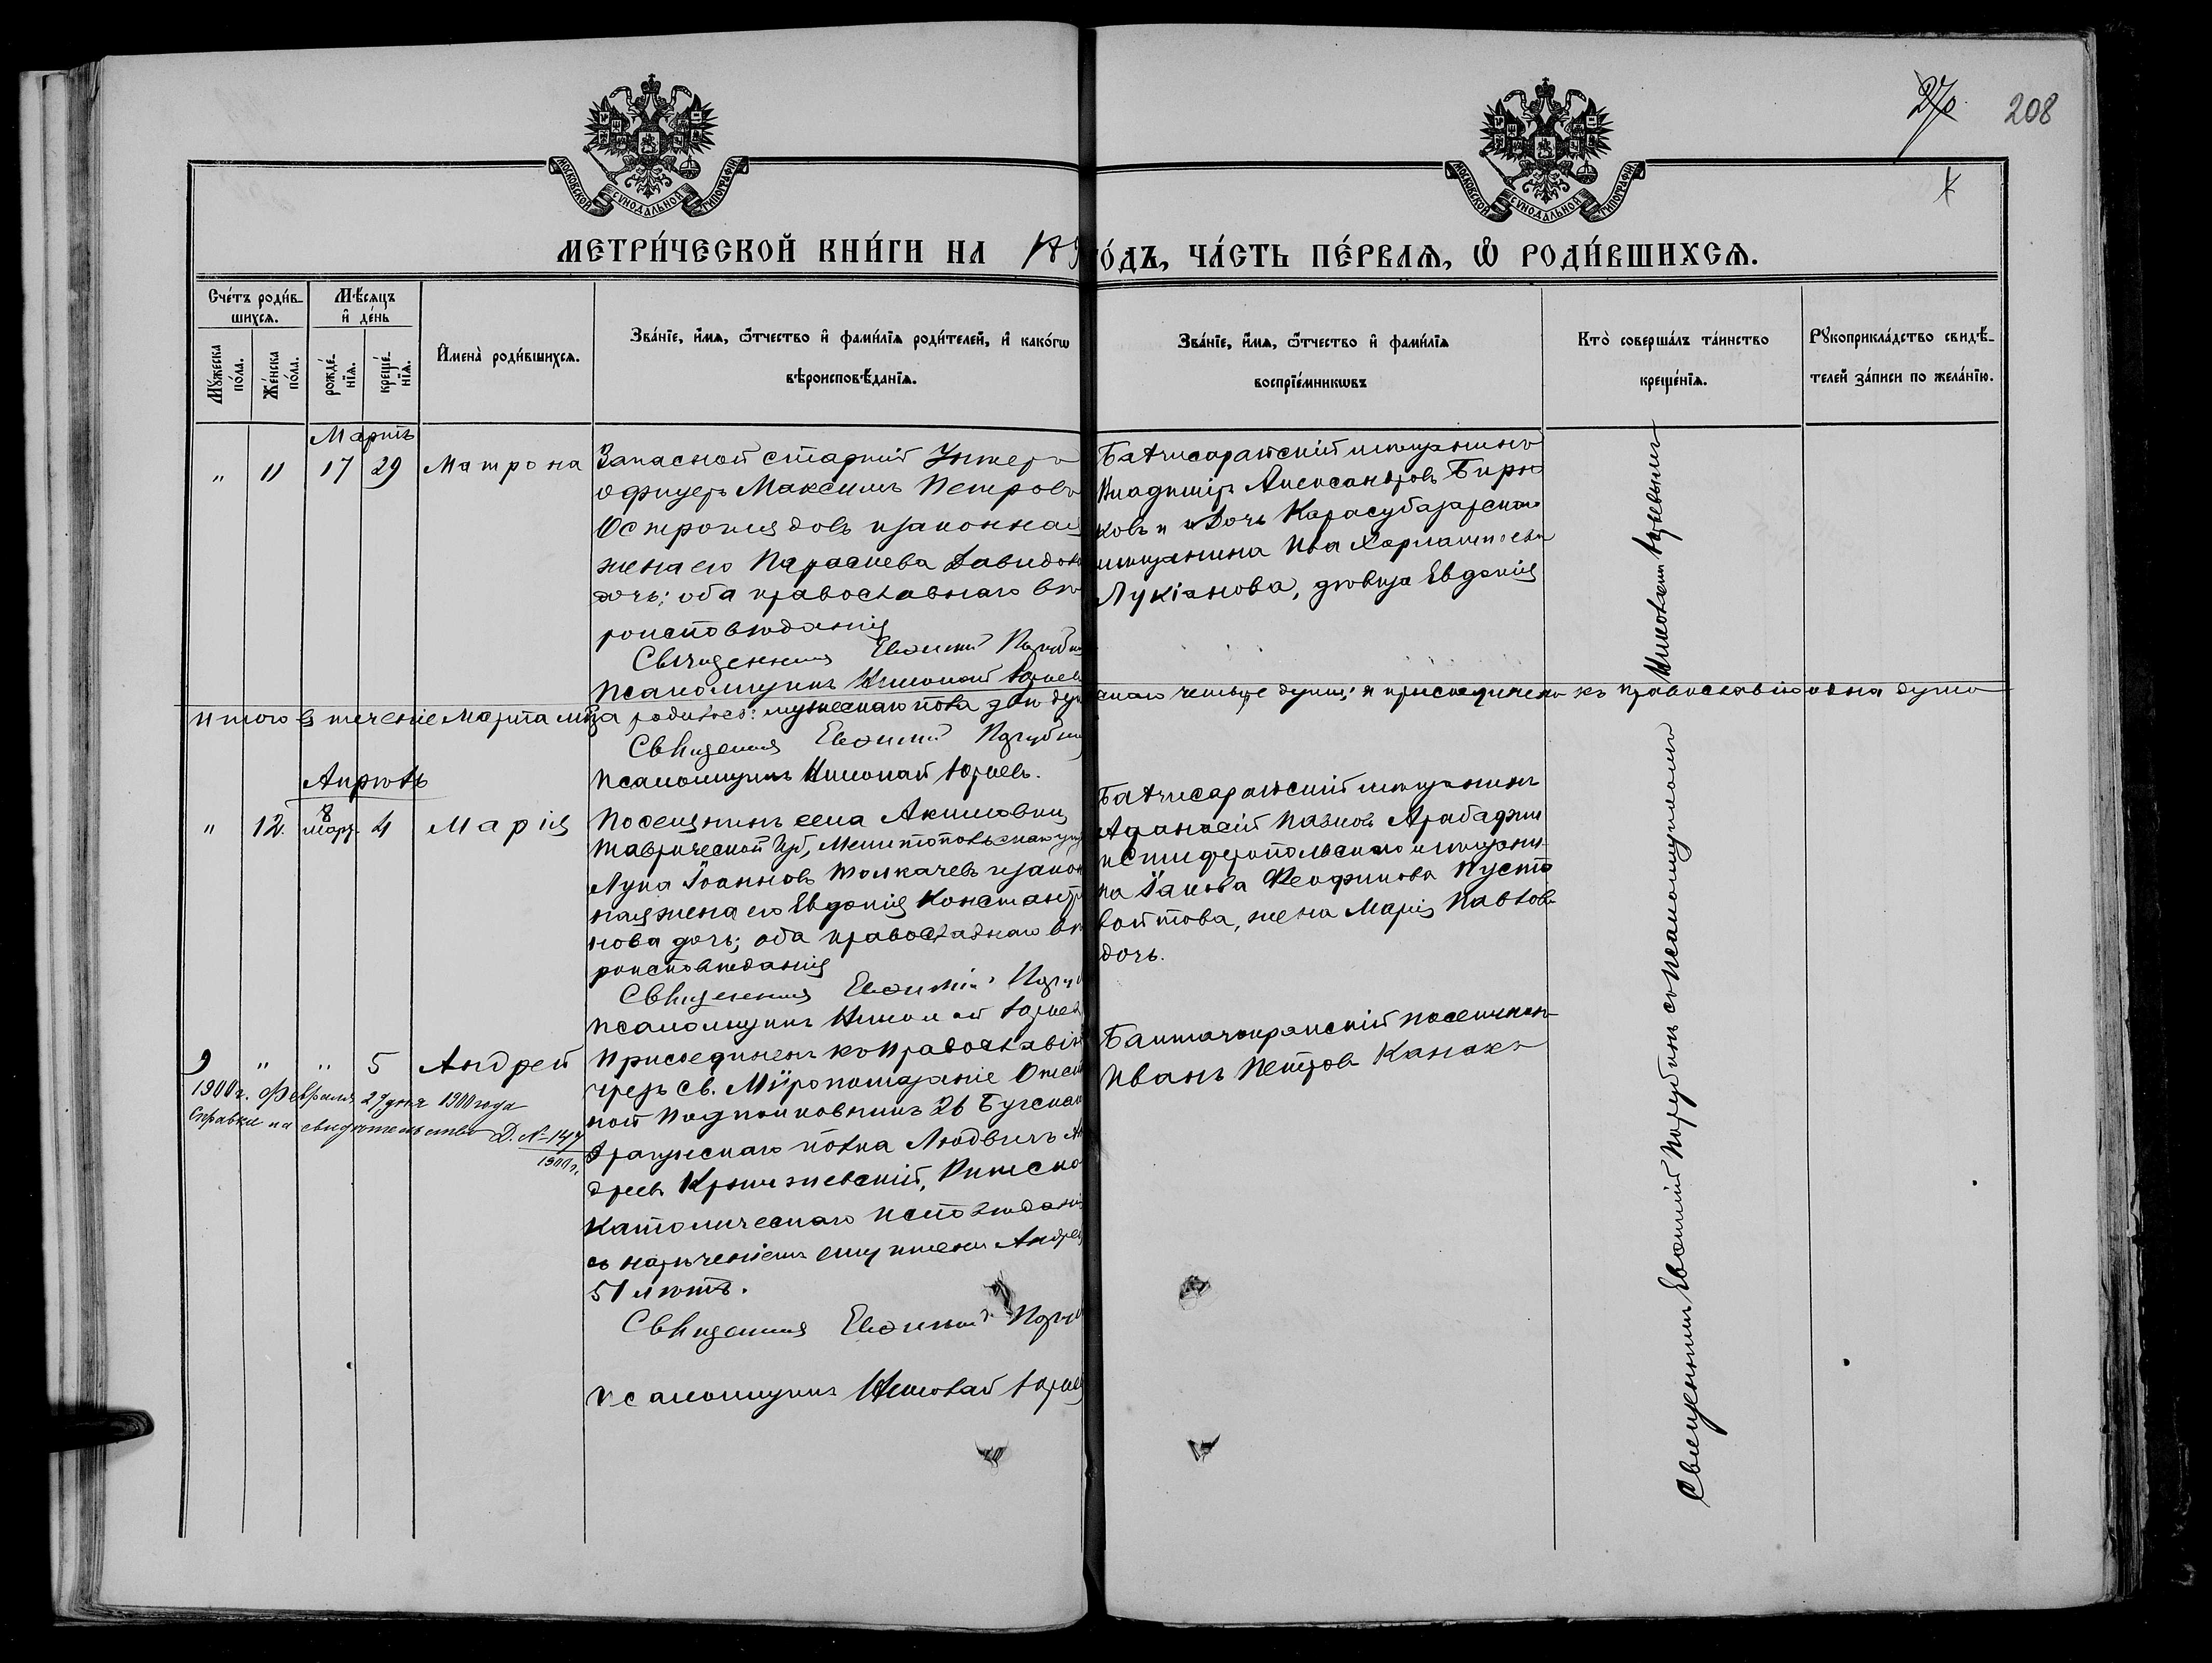 27
208
МОСКОВСКОЙ СѴНОДАЛЬНОЙ ТИПОГРАФІИ
МОСКОВСКОЙ СѴНОДАЛЬНОЙ ТИПОГРАФІИ
МЕТРИ́ЧЕСКОЙ КНИ́ГИ НА 189
ГО́ДЪ, ЧА́СТЬ ПЕ́РВАѦ, Ѡ҆ РОДИ́ВШИХСѦ.
Сче́тъ роди́в-
шихсѧ.
Мꙋ́жеска по́ла.
Же́нска по́ла.
Мѣ́сяцъ и҆ де́нь
рожде́-
нїѧ.
креще́-
нїѧ.
И҆мена̀ роди́вшихсѧ.
Зва́нїе, и҆́мѧ, ѻ҆́тчество и҆ фами́лїѧ роди́телей, и҆ како́гѡ
вѣроисповѣ́данїѧ.
Зва́нїе, и҆́мѧ, ѻ҆́тчество и҆ фами́лїѧ
воспрїе́мникѡвъ
Кто̀ соверша́лъ та́инство
креще́нїѧ.
Рꙋкоприкла́дство свидѣ́-
телей за́писи по жела́нїю.
Мартъ
" 11 17 29 Матрона
Запасной старшій Унтеръ
офицеръ Максимъ Петровъ
и законная
жена его Параскева Давидова
дочь; оба православнаго вѣ
роисповѣданія
Священникъ Евѳимій
Псаломщикъ Николай
Бахчисарайскій мѣщанинъ
Владиміръ Александровъ Бирю
ковъ и дочь Карасубазарскаго
мѣщанина
Лукіанова, дѣвица Евдокія
Итого въ теченіе Марта мѣца родилось: мужескаго пола двѣ душ
скаго четыре души; и присоединена къ православію одна душа
Священникъ Евѳимій
Псаломщикъ Николай
Апрѣль
" 12. 8 март. 4 Марія
Поселянинъ села Акимовки
Таврической Губ, Мелитопольскаго уѣз
Лука Іоанновъ Толкачевъ и закон
ная жена его Евдокія Константи
нова дочь; оба православнаго вѣ
роисповѣданія
Священникъ Евѳимій
Псаломщикъ Николай
Бахчисарайскій мѣщанинъ
Аѳанасій Павловъ Арабаджи
и Симферопольскаго мѣщани
на Іакова Пусто
войтова, жена Марія Павлова
дочь.
9 " " 5 Андрей
1900г. Февраля 27 дня 1900 года
Справки на свидѣтельство Д. № 147
1900 г.
Присоединенъ къ Православію
чрезъ Св. Мѵропомазаніе Отстав
ной Подполковникъ 26 Бугскаго
Драгунскаго полка Людвигъ Ан
дреевъ Римско
Католическаго исповѣданія
съ нареченіемъ ему имени Андрей
51 лѣтъ.
Священникъ Евѳимій
Псаломщикъ Николай
поселянинъ
Иванъ Петровъ
Священникъ Евѳимій съ Псаломщикомъ
Николаемъ